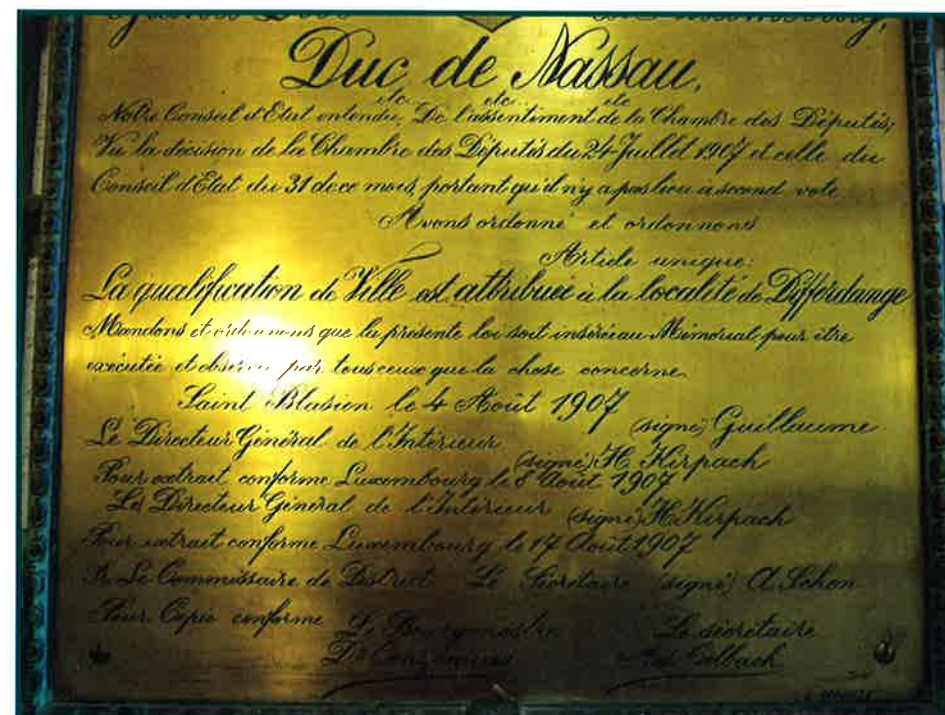 Duc de Nassau,
etc. etc. etc
Notre Conseil d'Etat entendu; De l'assentiment de la Chambre des Députés;
Vu la décision de la Chambre des Députés du 24 Juillet 1907 et celle du
Conseil d'Etat du 31 de ce mois, portant qu'il n'y a pas lieu à second vote
Avons ordonné et ordonnons
Article unique:
La qualification de Ville est attribuée à la localité de Differdange
Mandons et ordonnons que la présente loi soit insérée au Mémorial pour être
exécutée et observée par tous ceux que la chose concerne.
Saint Blasien le 4 Août 1907
(signé) Guillaume
Le Directeur Général de l'Intérieur
(signé) H. Kirpach
Pour extrait conforme Luxembourg le 8 Août 1907
Le Directeur Général de l'Intérieur (signé) H. Kirpach
Pour extrait conforme Luxembourg le 17 Août 1907
Le Commissaire de District Le Secrétaire (signé) A. Schon
Pour Copie conforme Le Bourgmestre Le secrétaire
Dr Conzemius